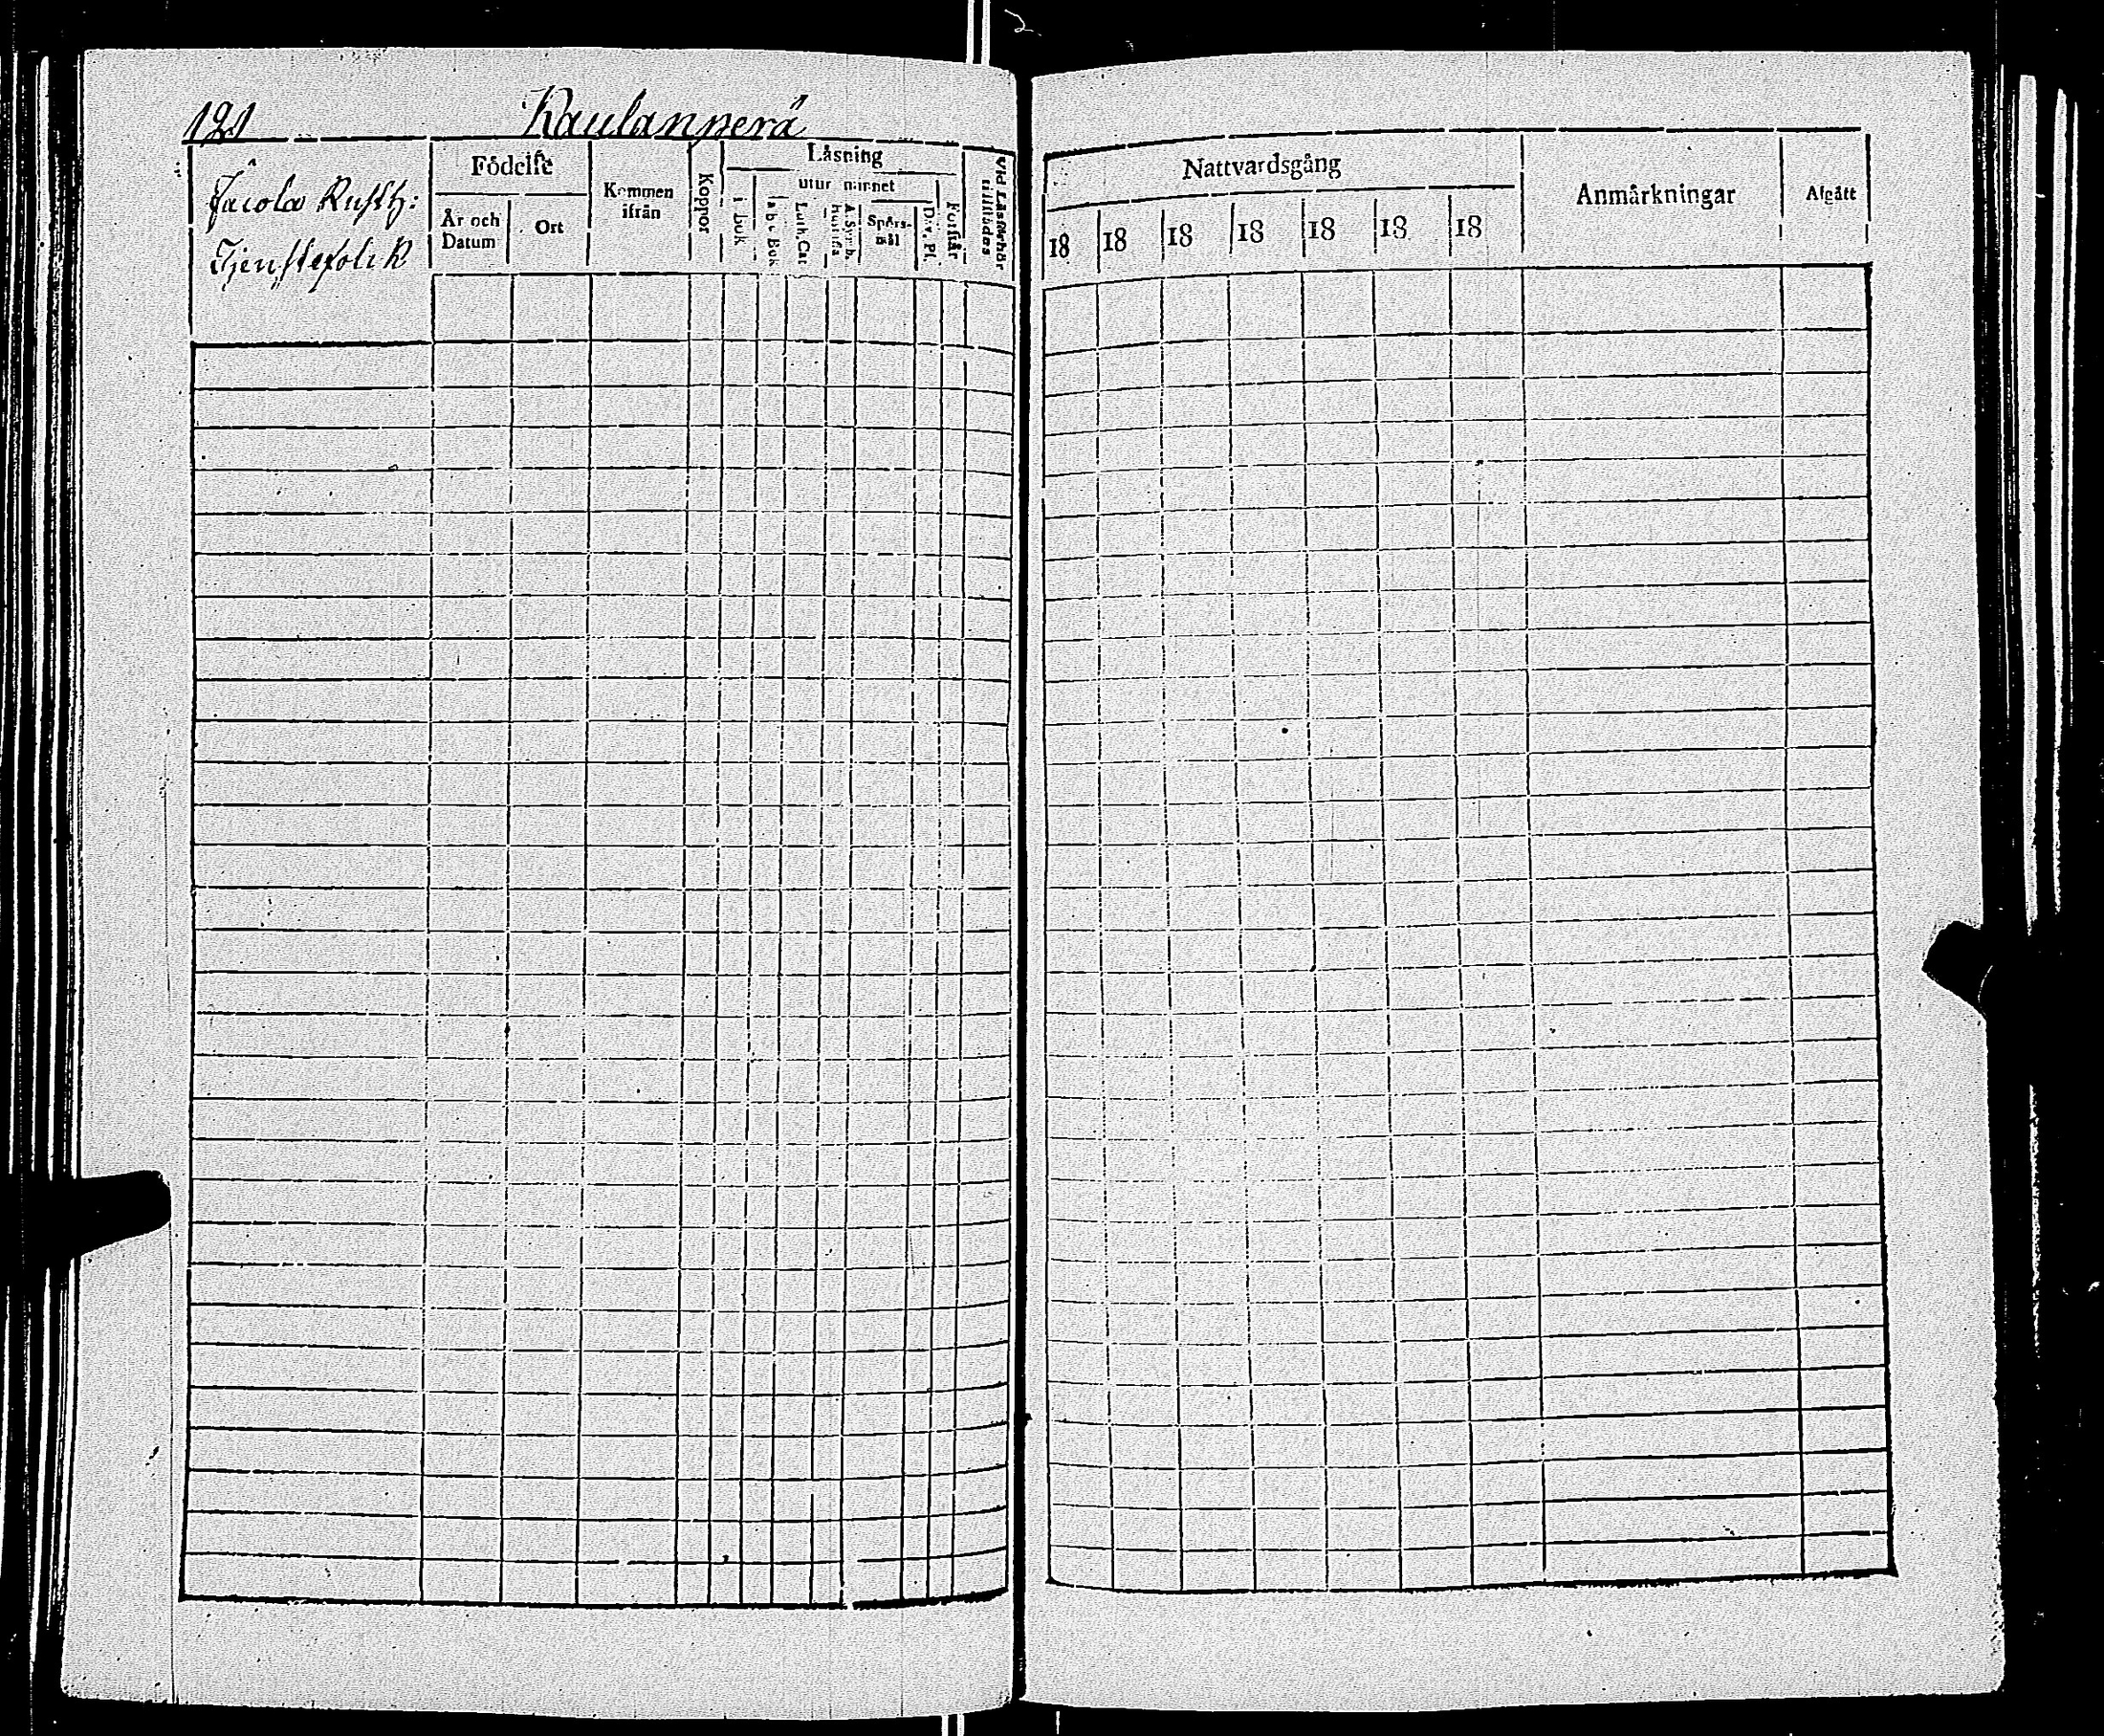 121 Kaulanperä
Jacola Rusth:
Tjenstefolk
Födelse
År och Datum
Ort
Kommen ifrån
Koppor
Läsning
i bok
utur minnet
a b c Bok
Luth. Cat.
Hustafla
A. Symb.
Spörs-mål
Dav. Pl.
Förstår
Vid Läsförhör tillstädes
Nattvardsgång
18 18 18 18 18 18 18
Anmärkningar
Afgått